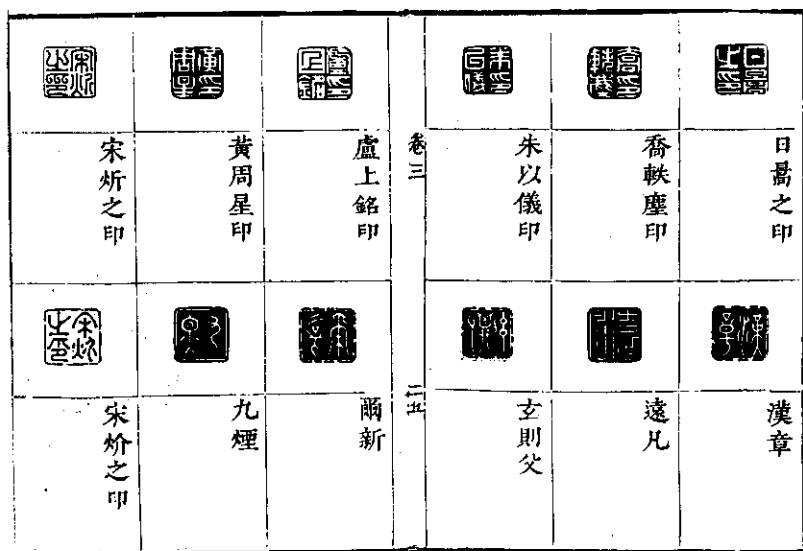 日暠之印
喬軼塵印
朱以儀印
漢章
遠凡
玄則父
卷三
十五
盧上銘印
黃周星印
宋炘之印
爾新
九煙
宋炌之印